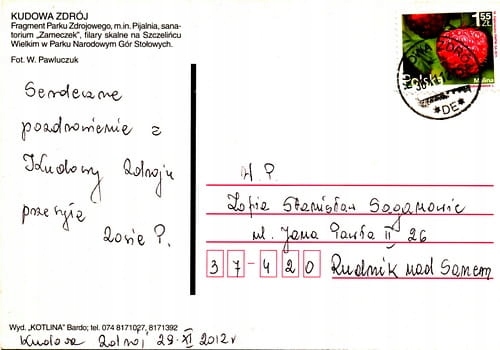 KUDOWA ZDRÓJ
Fragment Parku Zdrojowego, m.in. Pijalnia, sana-
torium „Zameczek”, filary skalne na Szczelińcu
Wielkim w Parku Narodowym Gór Stołowych.
Fot. W. Pawluczuk
Serdeczne
pozdrowienie z
Kudowy Zdroju
przesyła
Zosia P.
Wyd. „KOTLINA” Bardo; tel. 074 8171027, 8171392
Kudowa Zdrój 29 XI 2012 r
1 55
ZŁ
Polska
Malina
*DE*
W. P.
Zofia Stanisław Saganowic
ul. Jana Pawła II 26
37-420 Rudnik nad Sanem